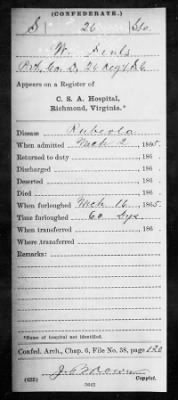 (CONFEDERATE.)
S 26 S.C.
W.
Pvt, Co. D, 26 Reg't S.C.
Appears on a Register of
C. S. A. Hospital,
Richmond, Virginia.*
Disease Rubeola
When admitted Mch 2, 1865.
Returned to duty , 186 .
Discharged , 186 .
Deserted , 186 .
Died , 186 .
When furloughed Mch. 16, 1865.
Time furloughed 60 Dys.
When transferred , 186 .
Where transferred
Remarks:
*Name of hospital not identified.
Confed. Arch., Chap. 6, File No. 58, page 120
(635) Copyist.